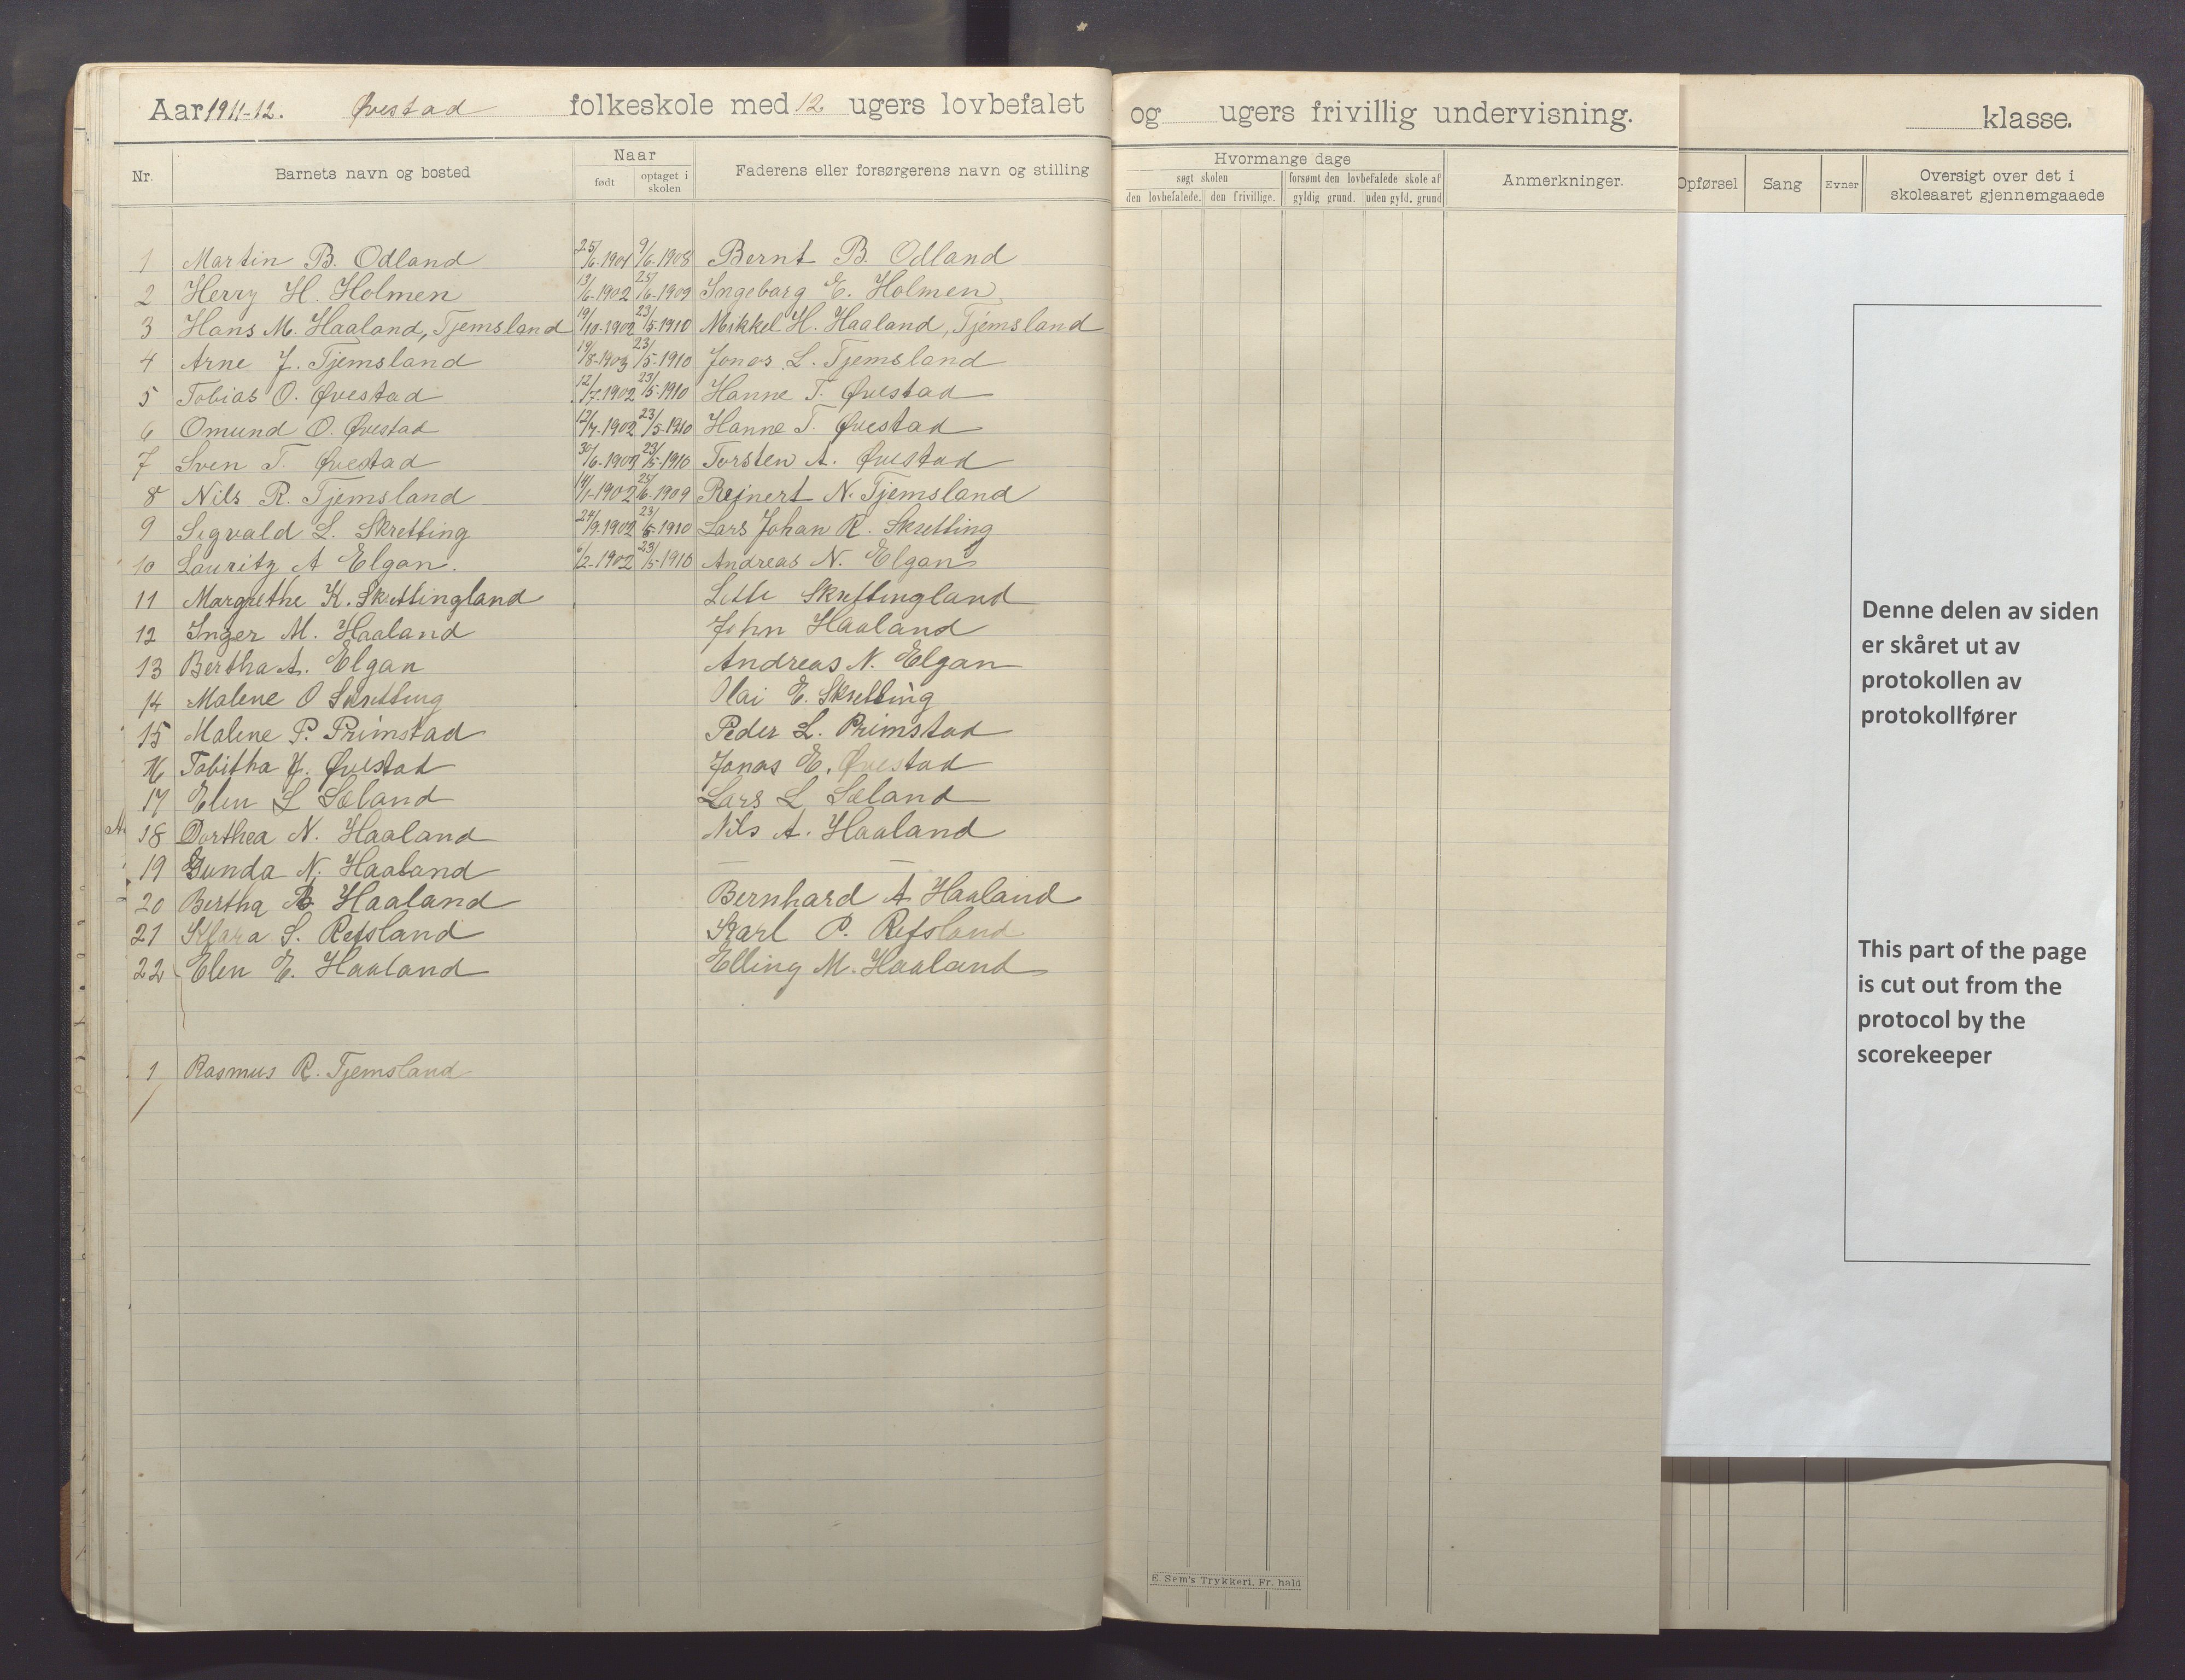 Aar 1911-12. Øvestad folkeskole med 12 ugers lovbefalet og ugers frivillig undervisning. klasse.
Nr. Barnets navn og bosted Naar født optaget i skolen Faderens eller forsørgerens navn og stilling Hvormange dage søgt skolen den lovbefalede. den frivillige. forsømt den lovbefalede skole af gyldig grund. uden gyld. grund Anmerkninger. Opførsel Sang Evner Oversigt over det i skoleaaret gjennemgaaede
1 Martin B. Odland 25/6-1901 9/6-1908 Bernt B. Odland
2 Herry H. Holmen 13/6-1902 25/6-1909 Ingeborg E. Holmen
3 Hans M. Haaland, Tjemsland 19/10-1902 23/5-1910 Mikkel H. Haaland, Tjemsland
4 Arne J. Tjemsland 19/8-1903 23/5-1910 Jonas L. Tjemsland
5 Tobias O. Øvestad 12/7-1902 23/5-1910 Hanne T. Øvestad
6 Omund O. Øvestad 12/7-1902 23/5-1910 Hanne T. Øvestad
7 Sven T. Øvestad 30/6-1903 23/5-1910 Torsten A. Øvestad
8 Nils R. Tjemsland 14/1-1902 25/6-1909 Reinert N. Tjemsland
9 Sigvald L. Skretting 24/9-1902 23/5-1910 Lars Johan R. Skretting
10 Lauritz A Elgan. 6/2-1902 23/5-1910 Andreas N. Elgan
11 Margrethe K. Skrettingland Skrettingland
12 Inger M. Haaland John Haaland
13 Bertha A. Elgan Andreas N. Elgan
14 Malene O Skretting Olai E. Skretting
15 Malene P. Primstad Peder L. Primstad
16 Tabitha J. Øvestad Jonas E. Øvestad
17 Elen L Sæland Lars L Sæland
18 Dorthea N. Haaland Nils A. Haaland
19 Gunda N. Haaland — —
20 Bertha B Haaland Bernhard A Haaland
21 Klara S. Refsland Karl P. Refsland
22 Elen E. Haaland Elling M. Haaland
1 Rasmus R. Tjemsland
E. Sem's Trykkeri, Fr. hald
Denne delen av siden
er skåret ut av
protokollen av
protokollfører
This part of the page
is cut out from the
protocol by the
scorekeeper